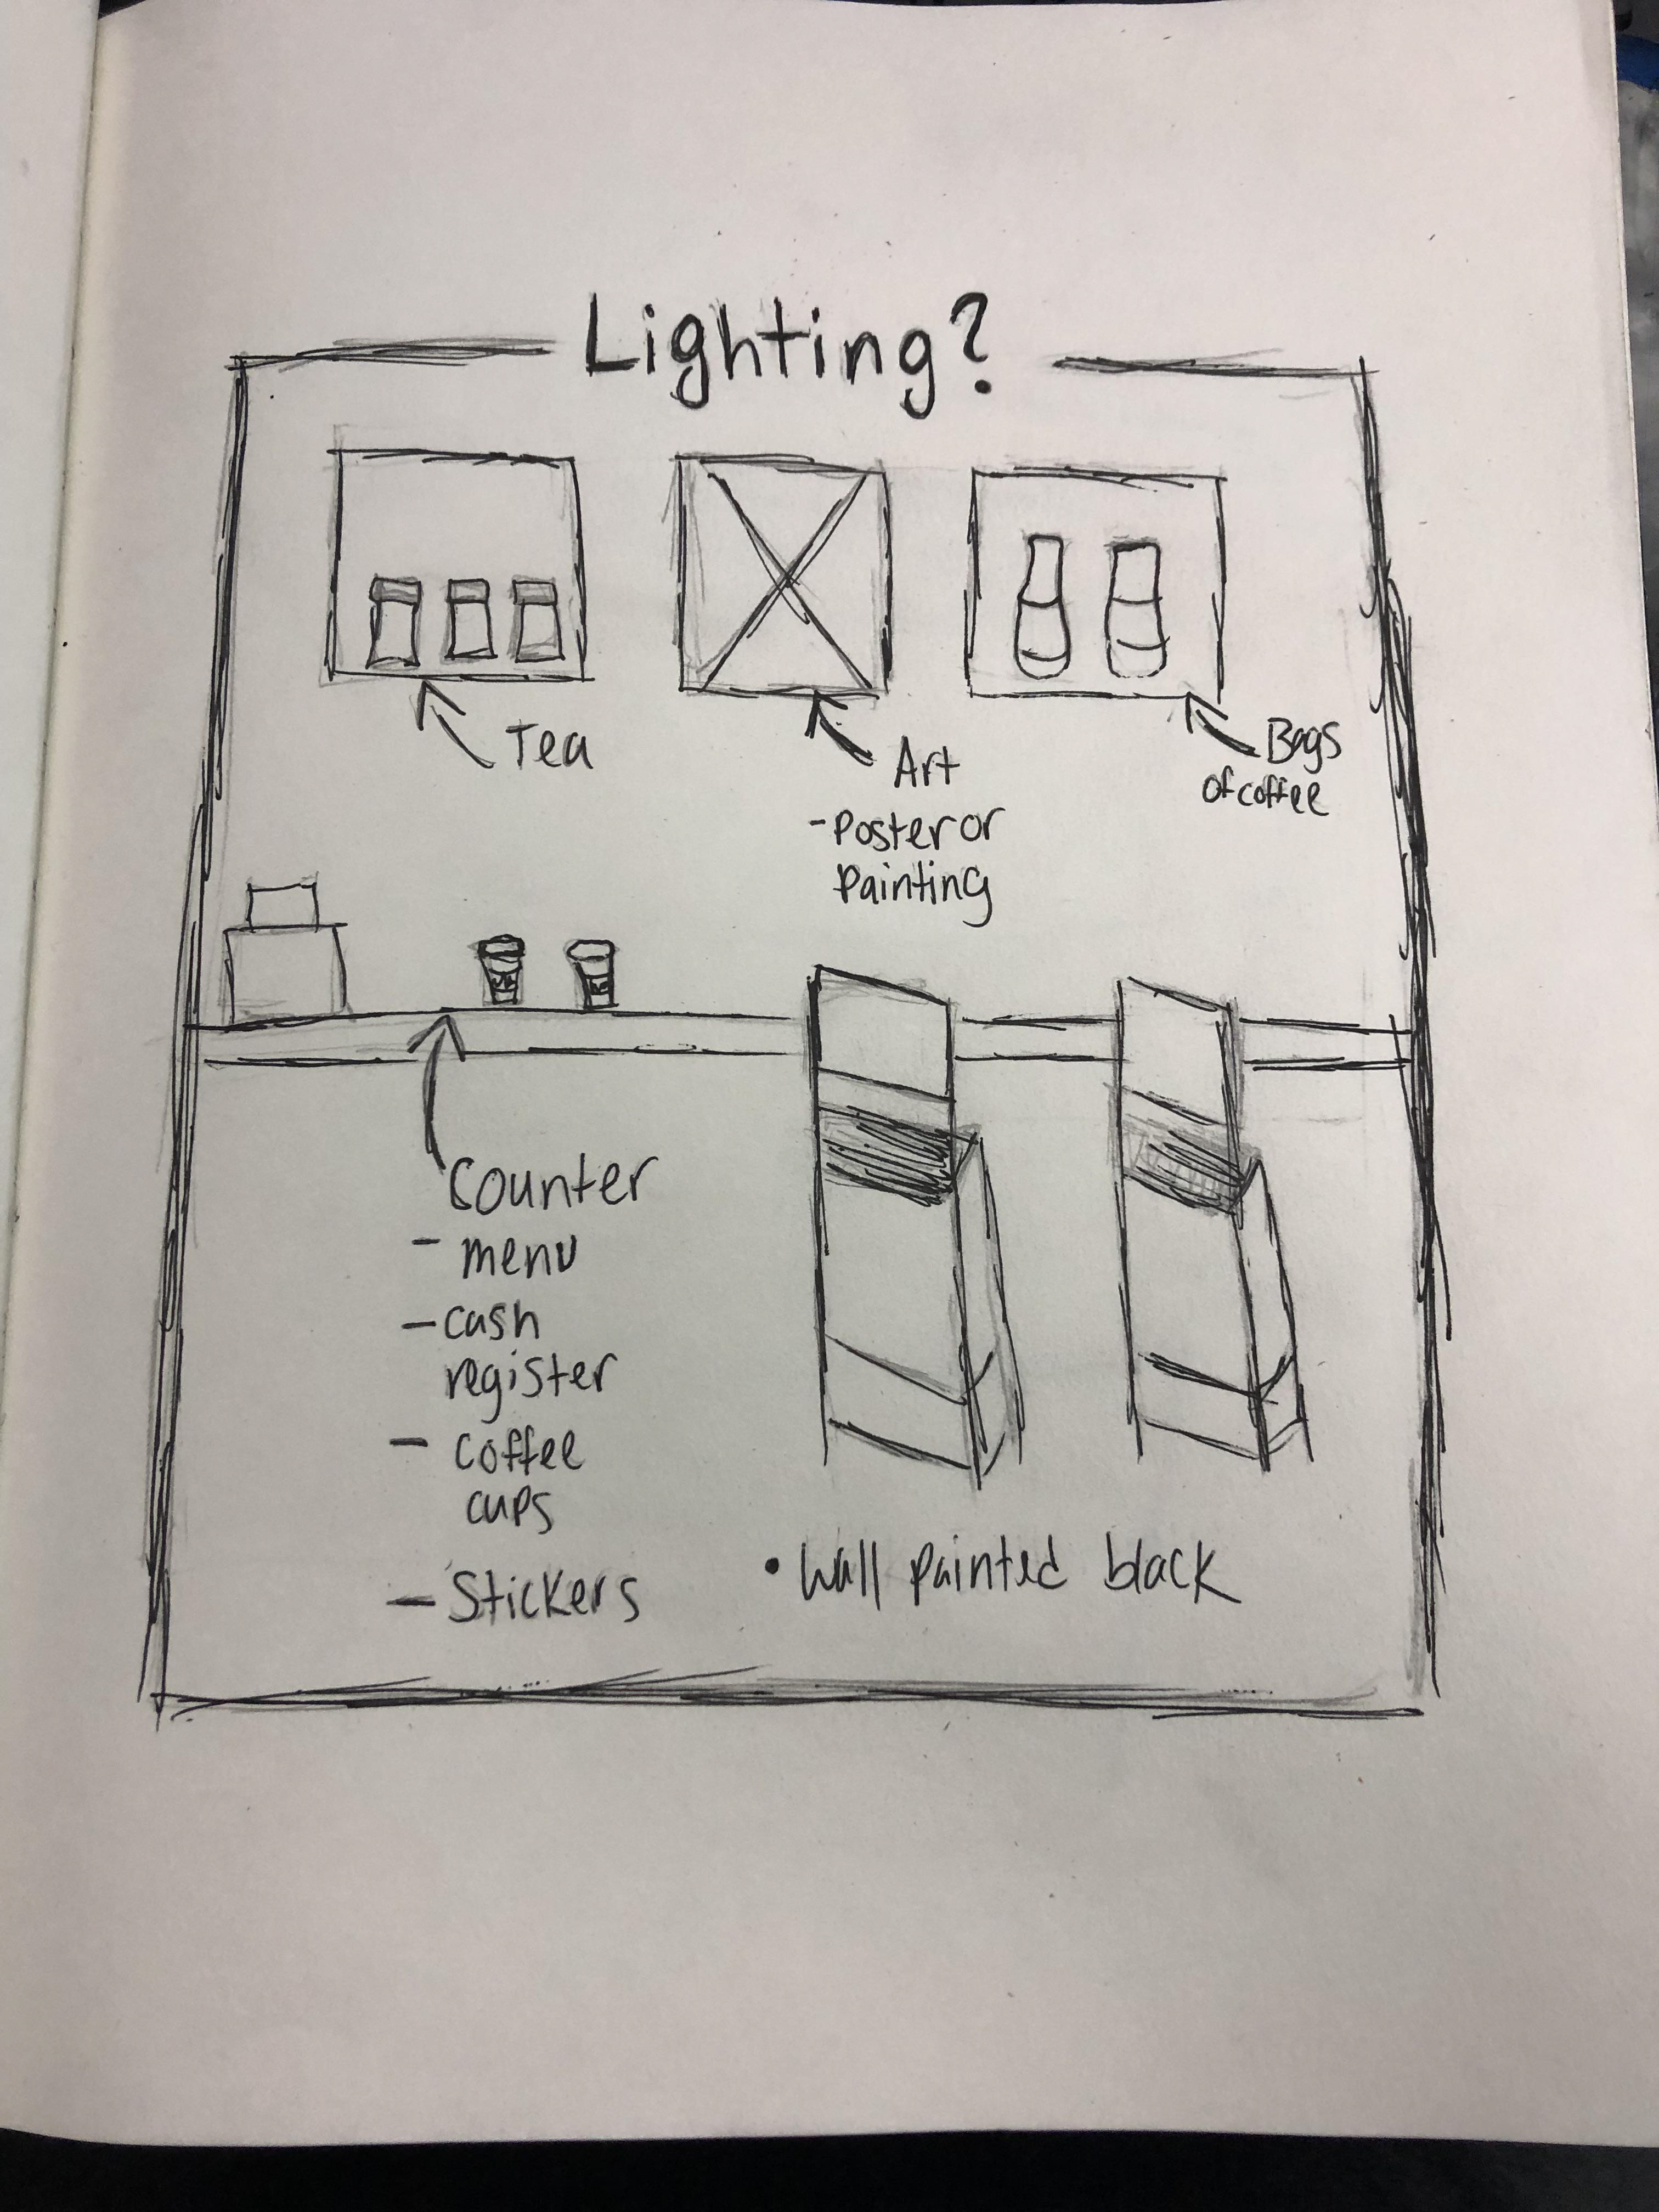 Lighting?
Tea
Art
- Poster or
Painting
Bags
of coffee
Counter
- menu
- cash
register
- coffee
cups
- Stickers
• Wall painted black